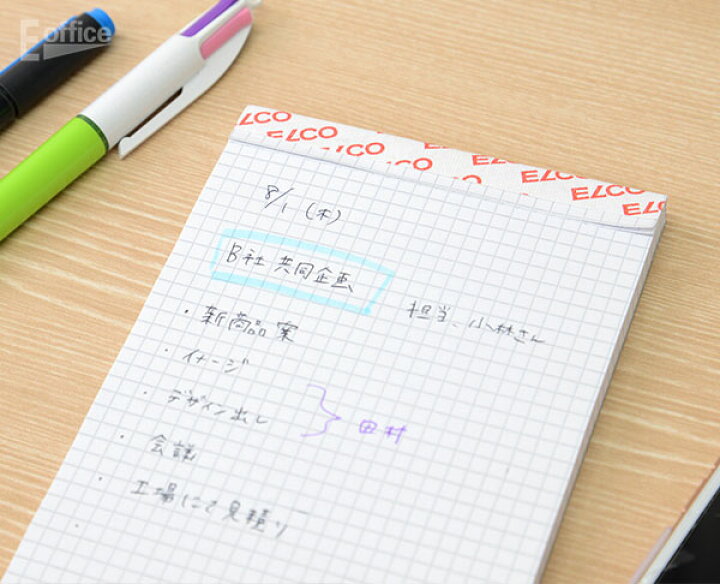 E office
ELCO ELCO ELCO ELCO ELCO ELCO ELCO
8/1 (木)
B社 共同企画
担当、小林さん
・新商品案
・イメージ
・デザイン出し
田村
・会議
・工場にて見積り